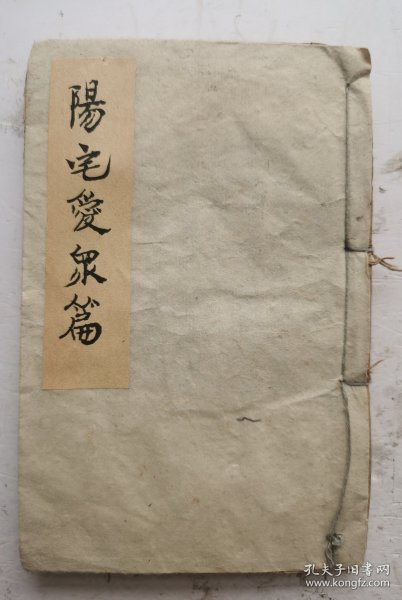 陽宅愛眾篇
孔夫子旧书网
www.kongfz.com